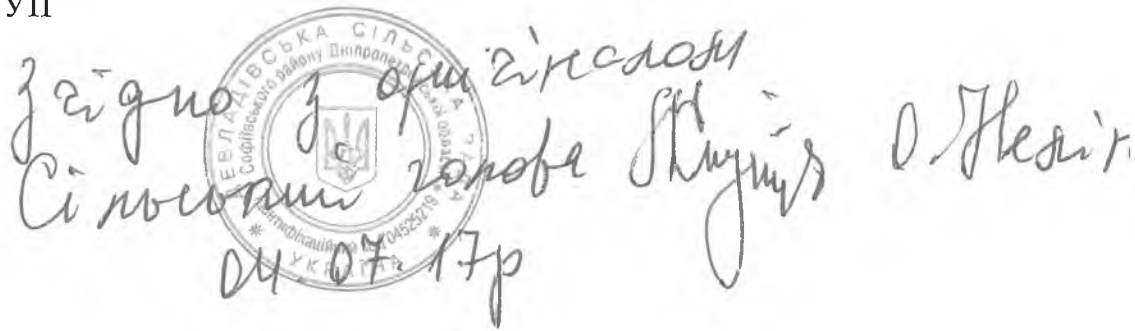 УП
Згідно з оригіналом
Сільський голова О. Неліп
04.07.17р
ДЕВЛАДІВСЬКА СІЛЬСЬКА РАДА
Софіївського району Дніпропетровської області
Ідентифікаційний код 04525219
* УКРАЇНА *